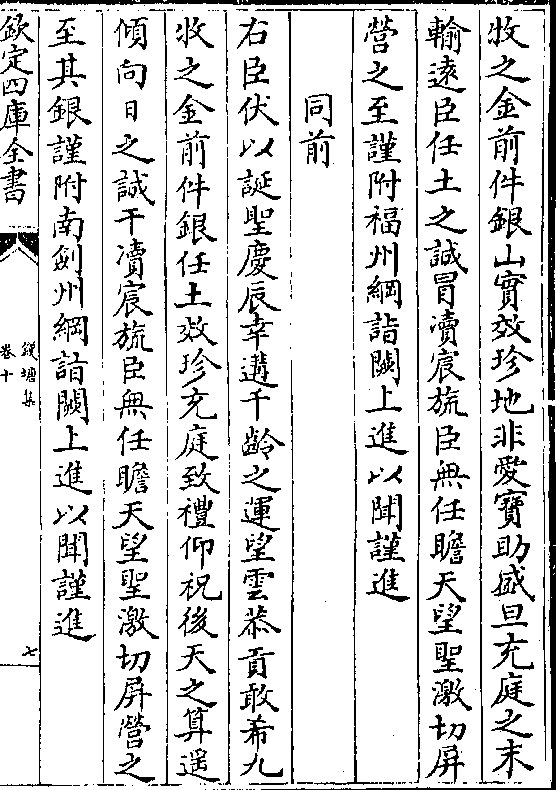 牧之金前件銀山實效珍地非愛寶助盛旦充庭之末
輸遠臣任土之誠冒瀆宸旒臣無任瞻天望聖激切屏
營之至謹附福州綱詣闕上進以聞謹進
同前
右臣伏以誕聖慶辰幸遘千齡之運望雲恭貢敢希九
牧之金前件銀任土效珍充庭致禮仰祝後天之算遥
傾向日之誠干瀆宸旒臣無任瞻天望聖激切屏營之
至其銀謹附南劍州綱詣闕上進以聞謹進
欽定四庫全書
錢塘集
卷十
七